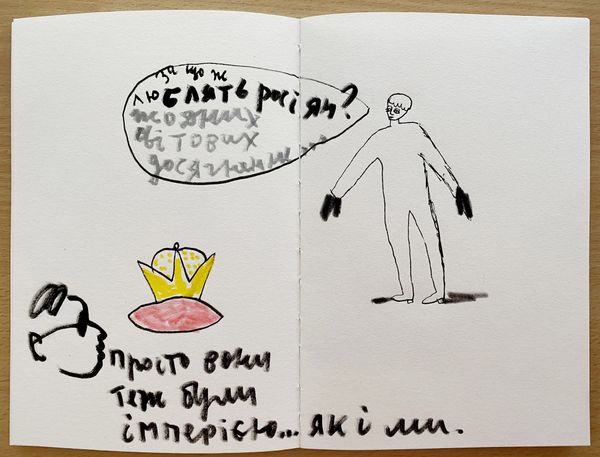 за що ж
люблять росіян?
жодних
світових
досягнень
просто вони
теж були
імперією... як і ми.